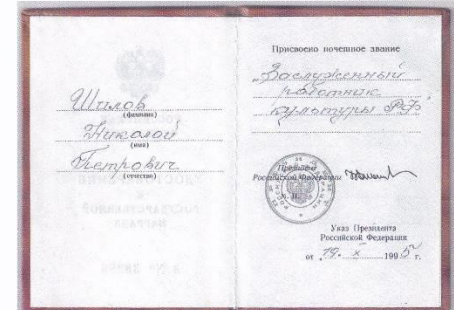 Шилов
(фамилия)
Николой
(имя)
Петрович
(отчество)
Присвоено почетное звание
„Заслуженный
работник
культуры РФ“
Президент
Российской Федерации
Указ Президента
Российской Федерации
от „19“ X 1995 г.